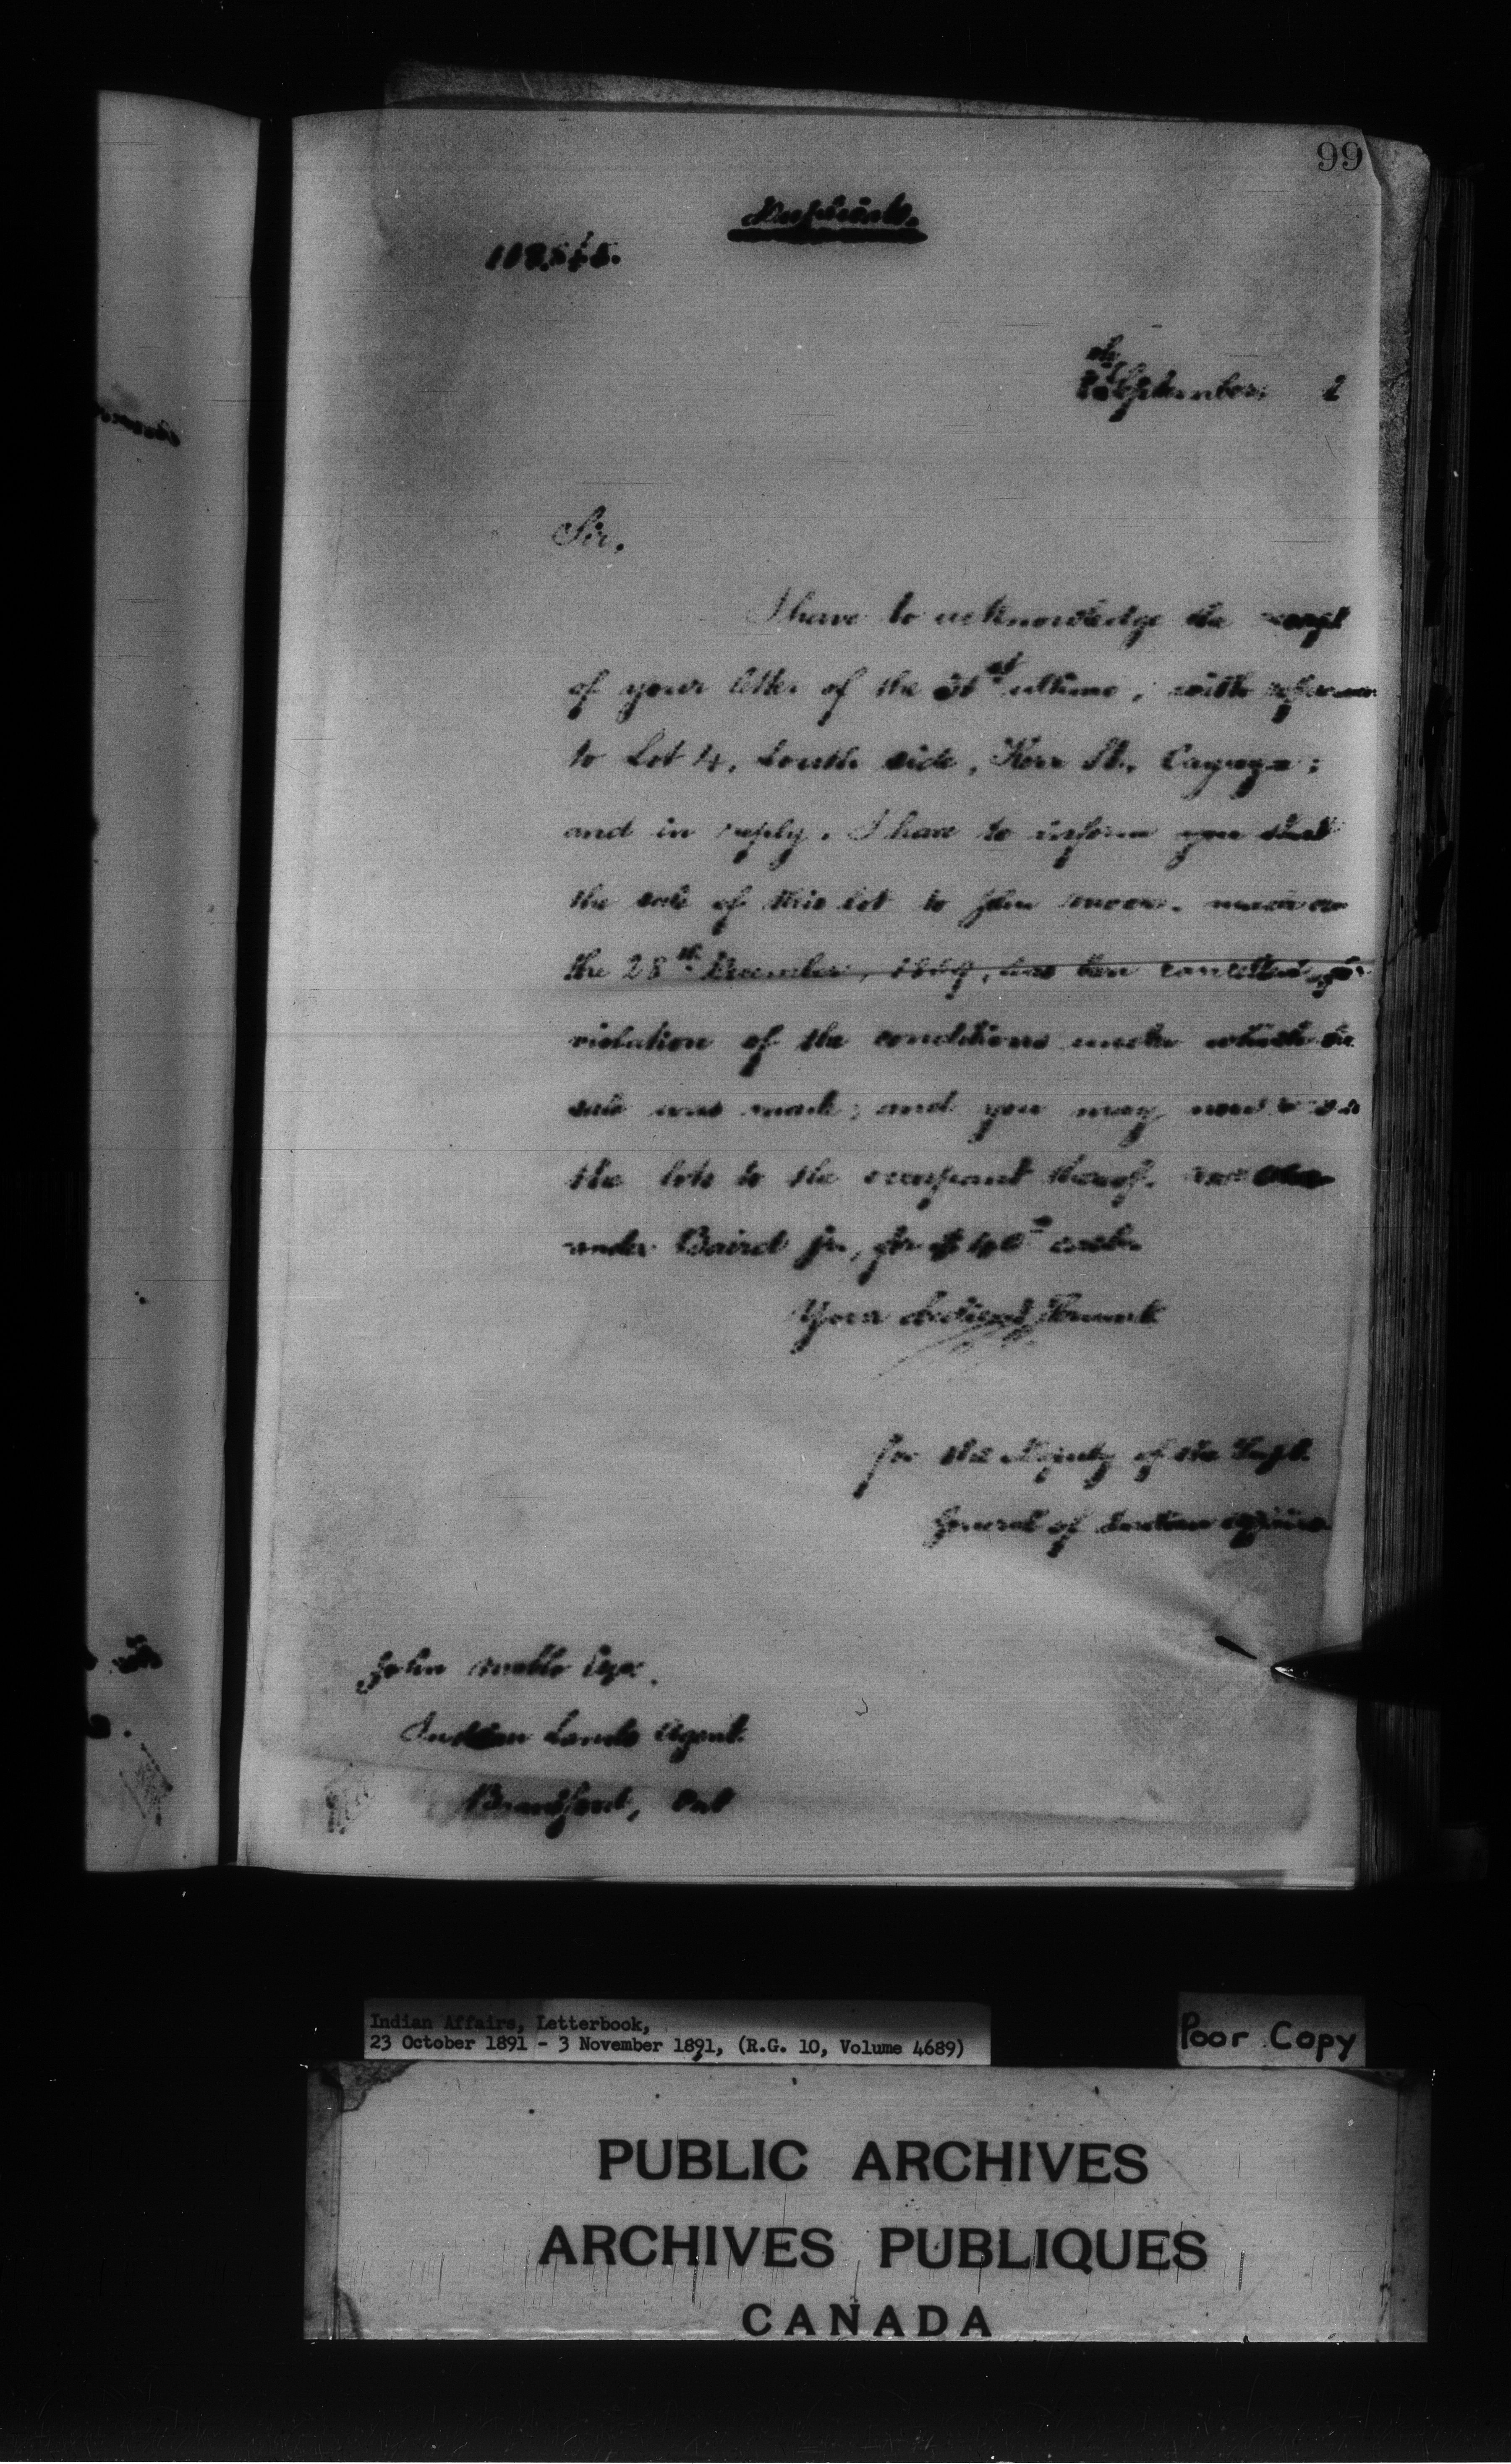 99
Duplicate.
September,
Sir,
I have to acknowledge the receipt
of your letter of the 31st ultimo, with reference
to Lot 4, South side, Kerr St., Cayuga;
and in reply, I have to inform you that
the sale of this lot to John made on
the 28th December, 1869, has been cancelled, for
violation of the conditions under which the
sale was made; and you may now
the lots to the occupant thereof,
ander Baird jr., for $ cash.
Your obedient Servant
for the Deputy of the Supt.
General of Indian Affairs
John Esqr.
Indian Lands Agent.
Brantford, Ont
Indian Affairs, Letterbook,
23 October 1891 - 3 November 1891, (R.G. 10, Volume 4689)
Poor Copy
PUBLIC ARCHIVES
ARCHIVES PUBLIQUES
CANADA